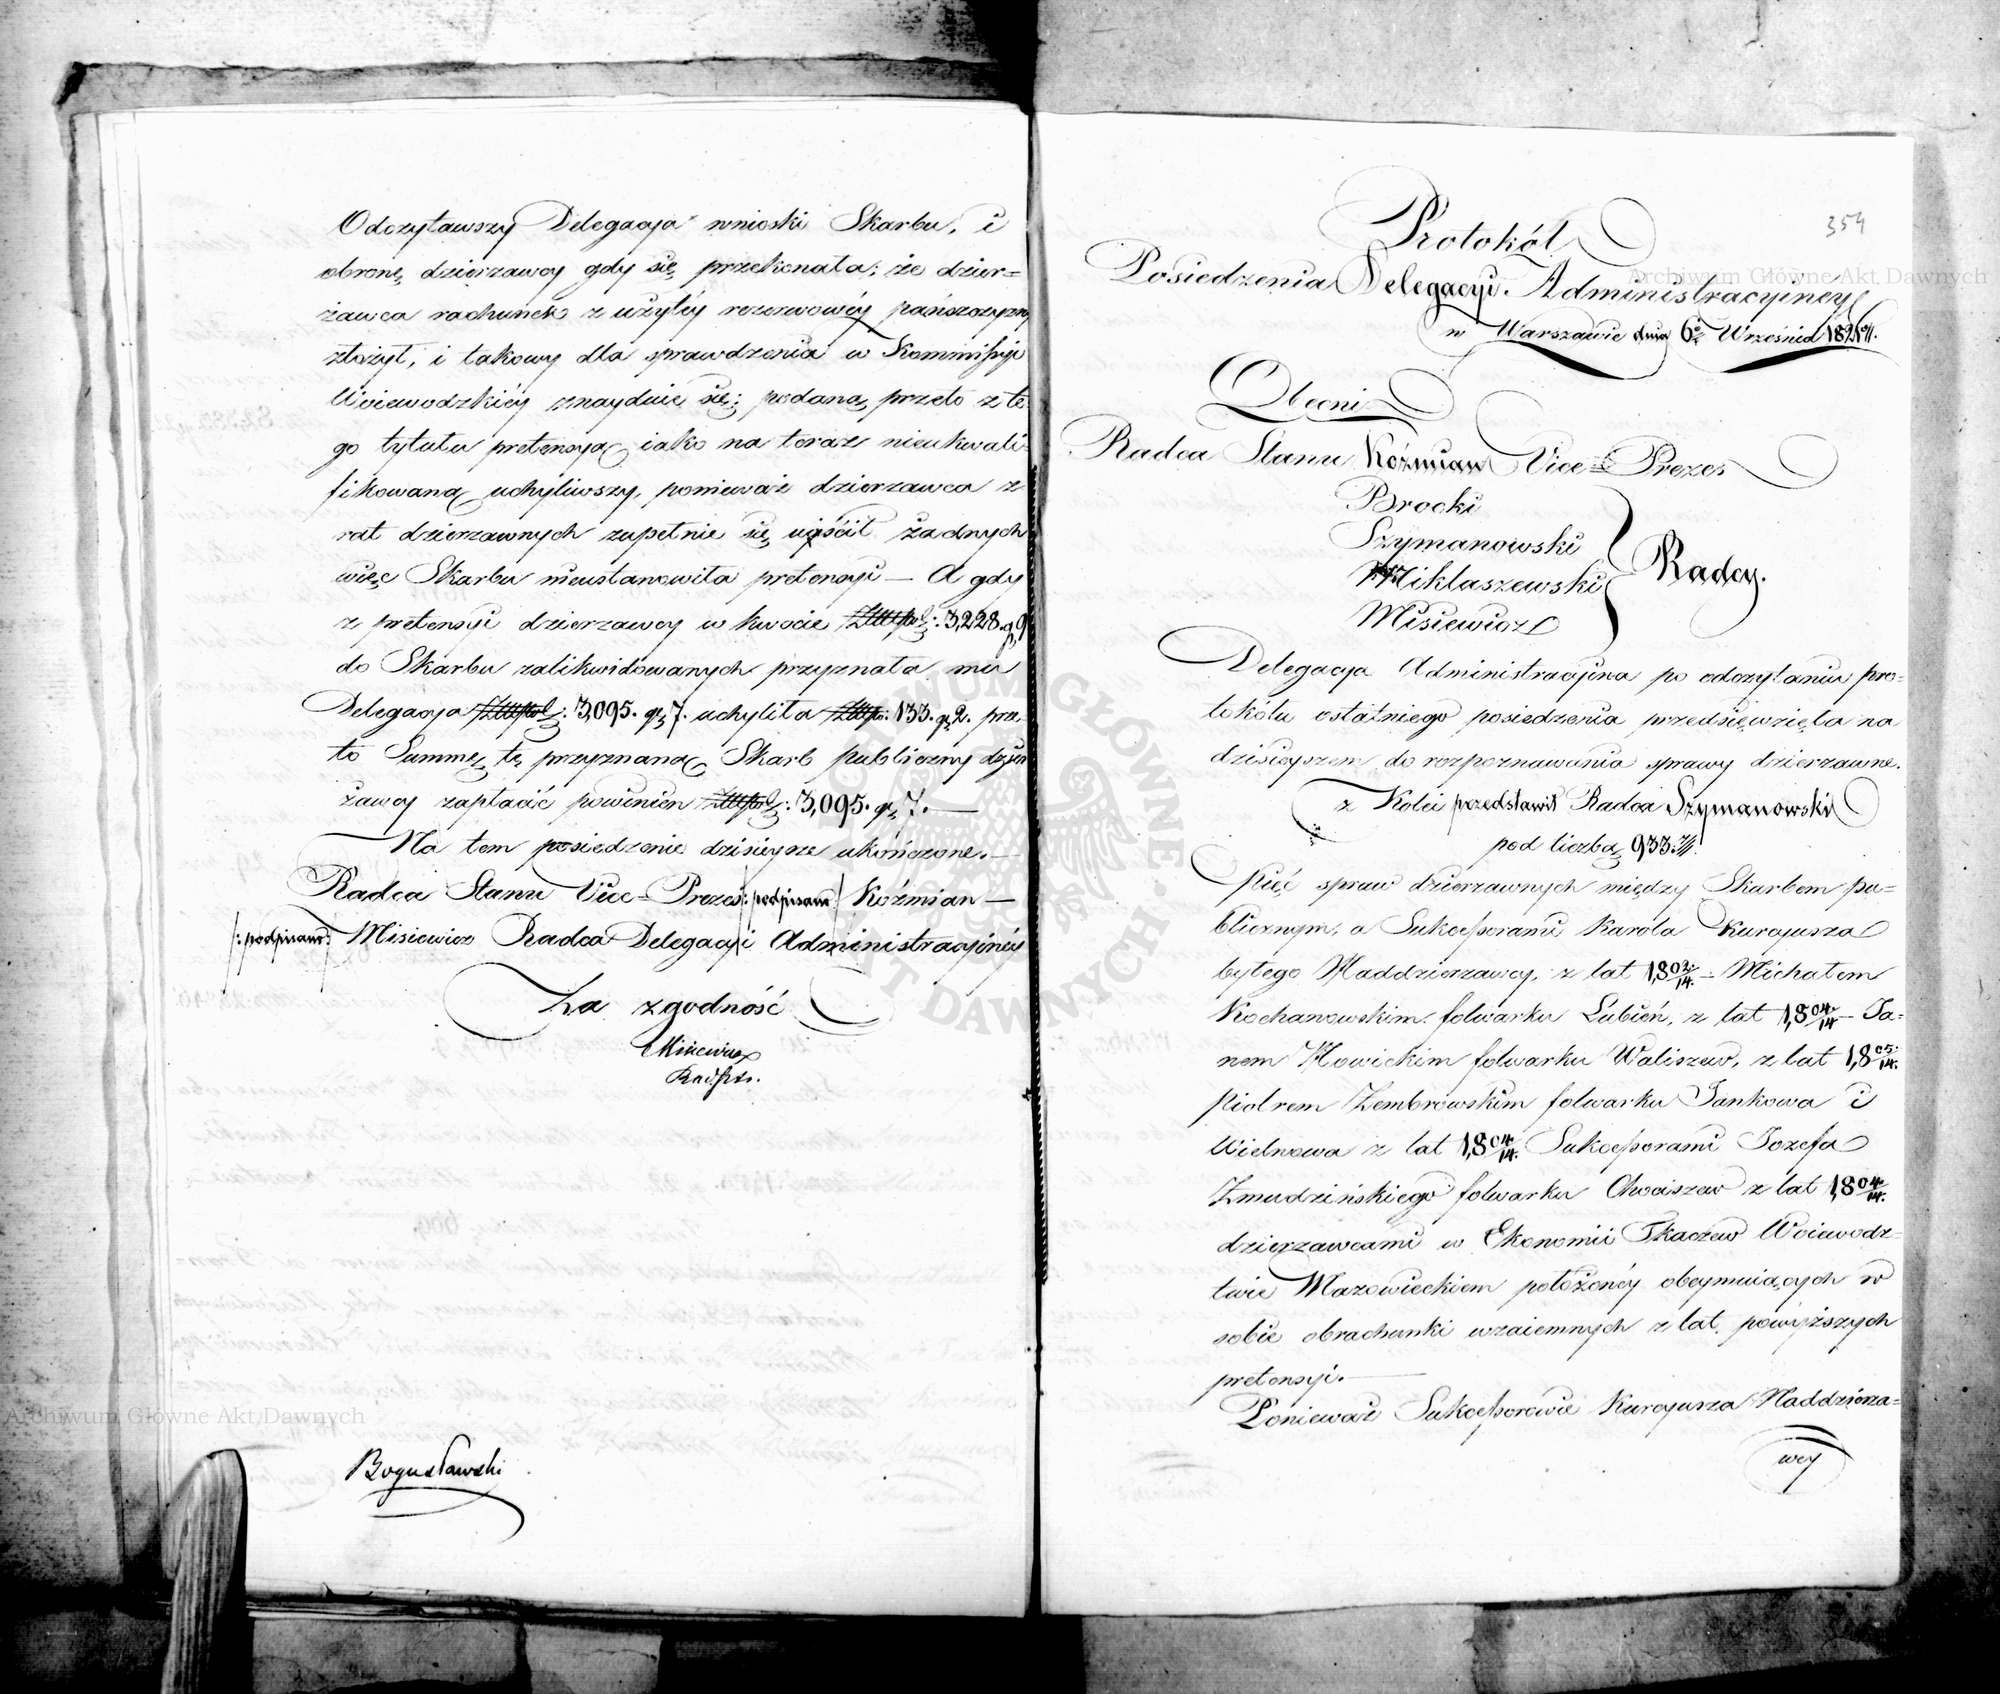 Odczytawszy Delegacya wnioski Skarbu, i
obronę dzierzawcy gdy się przekonała, że dzier=
żawca rachunek z użytéy rezerwowéy pańszczyzny
złożył, i takowy dla sprawdzenia w Kommissyi
Woiewodzkiéy znayduie się; podaną przeto z te
go tytułu pretensyą iako na teraz nieukwali=
fikowaną uchyliwszy, ponieważ dzierzawca z
rat dzierzawnych zupełnie się uiścił żadnych
więc Skarbu nieustanowiła pretensyi — A gdy
z pretensyi dzierzawcy w kwocie Złłpol: 3,228. gr 9
do Skarbu zalikwidowanych przyznała mu
Delegacya Złłpol: 3,095. gr 7. uchyliła Złłpo: 133. gr 2. prze
to Summę tę przyznaną Skarb publiczny dzier
żawcy zapłacić powinien Złłpol: 3,095. gr 7. —
Na tem posiedzenie dzisieysze ukończone. —
Radca Stanu Vice-Prezes /:podpisano:/ Koźmian —
/:podpisano:/ Misiewicz Radca Delegacyi Administracyinéy
Za zgodność
Misiewicz
Bogusławski
354
Protokół
Posiedzenia Delegacyi Administracyiney
w Warszawie dnia 6go Września 1821 r.
Obecni
Radca Stanu Koźmian Vice=Prezes
Brocki
Szymanowski
Miklaszewski
Misiewicz
Radcy.
Delegacya Administracyina po odczytaniu pro=
tokółu ostatniego posiedzenia przedsięwzięła na
dzisieyszem do rozpoznawania sprawy dzierzawne.
z Kolei przedstawił Radca Szymanowski
pod liczbą 933.
Pięć spraw dzierzawnych między Skarbem pu=
blicznym, a Sukcessorami Karola Kurcyusza
byłego Naddzierzawcy, z lat 1802/14. — Michałem
Kochanowskim folwarku Lubień, z lat 1,804/14 — Ja=
nem Nowickim folwarku Waliszew, z lat 1,805/14.
Piotrem Zembrowskim folwarku Jankowa i
Wielnowa z lat 1,804/14. Sukcessorami Jozefa
Zmudzińskiego folwarku Chociszew z lat 1,804/14.
dzierzawcami w Ekonomii Tkaczew Woiewodz=
twie Mazowieckiem położonéy obeymuiących w
sobie obrachunki wzaiemnych z lat powyższych
pretensyi. —
Ponieważ Sukcessorowie Kurcyusza Naddzierza=
wcy
Archiwum Główne Akt Dawnych
Archiwum Główne Akt Dawnych
ARCHIWUM GŁÓWNE AKT DAWNYCH